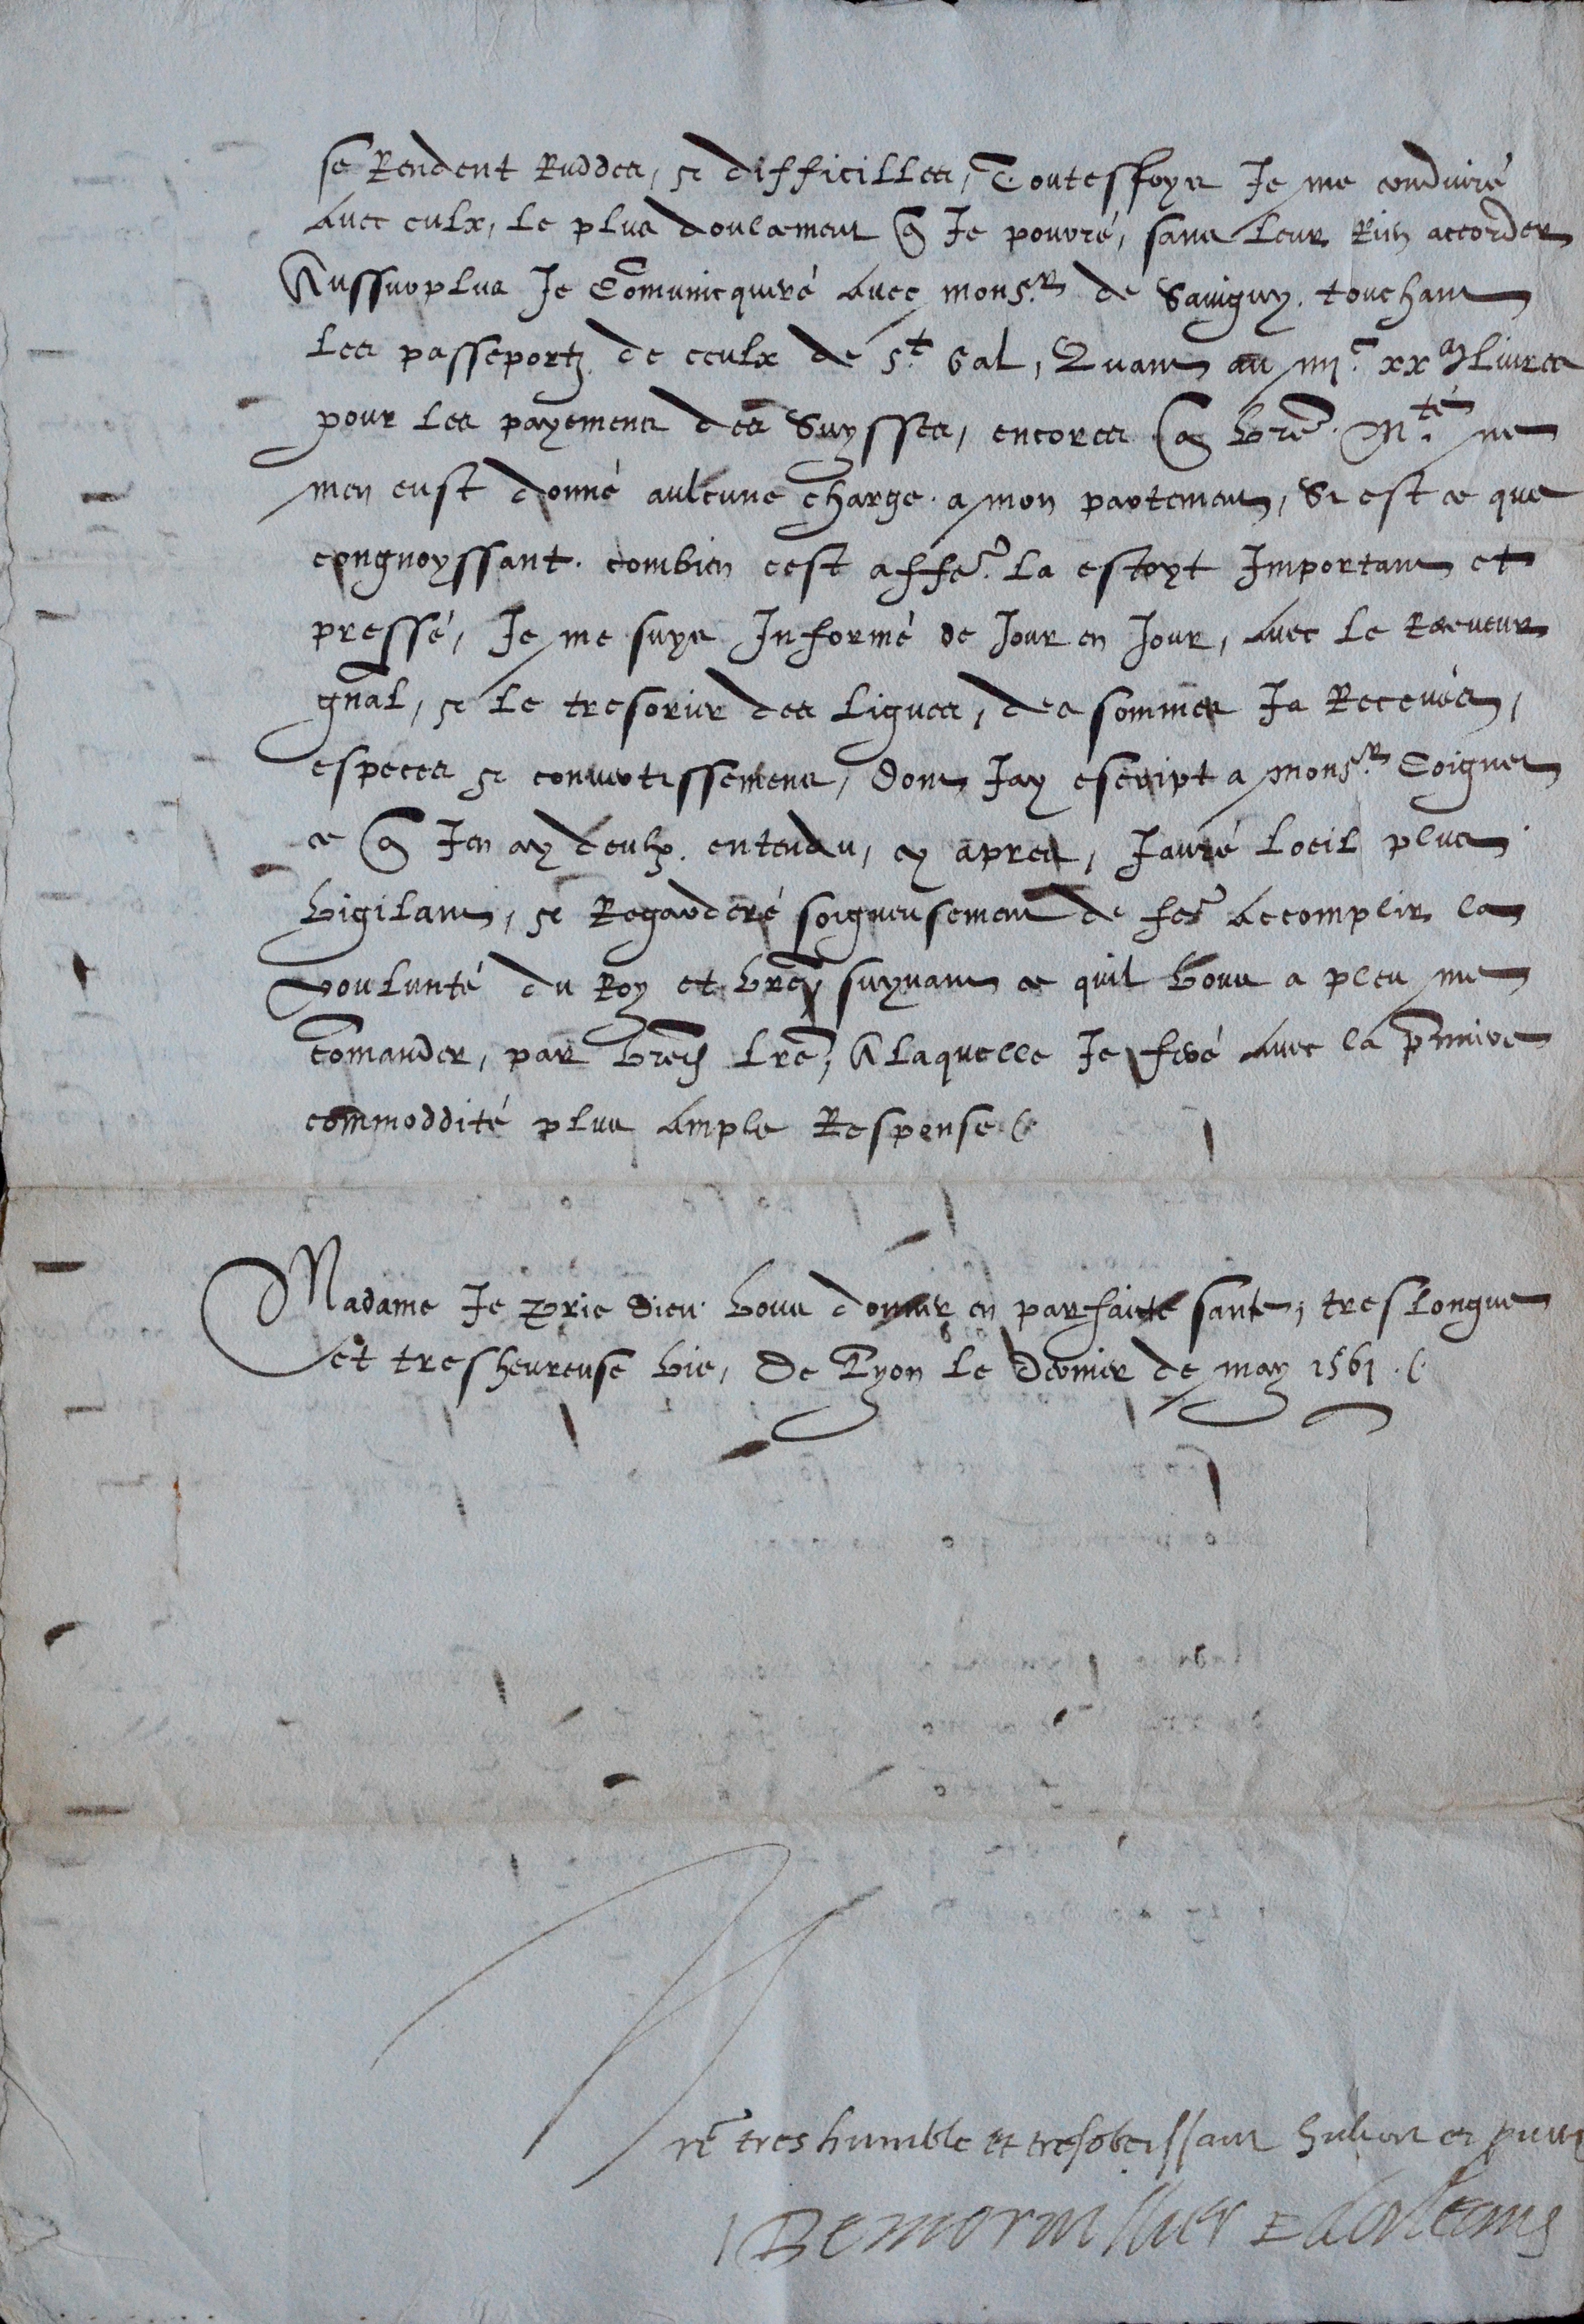 se Rendent Ruddes, & difficilles, Toutesfoys Je me conduiré
avec eulx, le plus doulcement q̃ Je pourré, sans leur Rien accorder
Aussurplus Je Com̃unicquiré avec monsr. de Savigny. touchant
les passeportz de ceulx de St. Gal, Quant au iiijc xx livres
pour les payemens des Suysses, encores q̃ vr̃e. Mté. ne
men eust donné aulcune charge. a mon partement, Si est ce que
congnoyssant. combien cest affe͂. la estoyt Important et
pressé, Je me suys Informé de Jour en Jour, avec le Receveur
gñal, & le tresorier des ligues, des sommes Ja Receues,
especes & convertissemens, dont Jay escript a monsr. Coignet
ce q̃ Jen ay deulx. entendu, cy apres, Jauré loeil plus
vigilant, & Regarderé soigneusement de fe͂ accomplir la
voulunté du Roy et vr̃e, suyvant ce quil vous a pleu me
com̃ander, par vr̃e lr̃e, A laquelle Je feré avec la p̃miere
commoddité plus ample Response
Madame Je prie Dieu vous donner en parfaicte sante, treslongue
et tresheureuse vie, De Lyon le dernier de may 1561.
Vr̃e tres humble et tresobeissant
De morvillier E dorleans